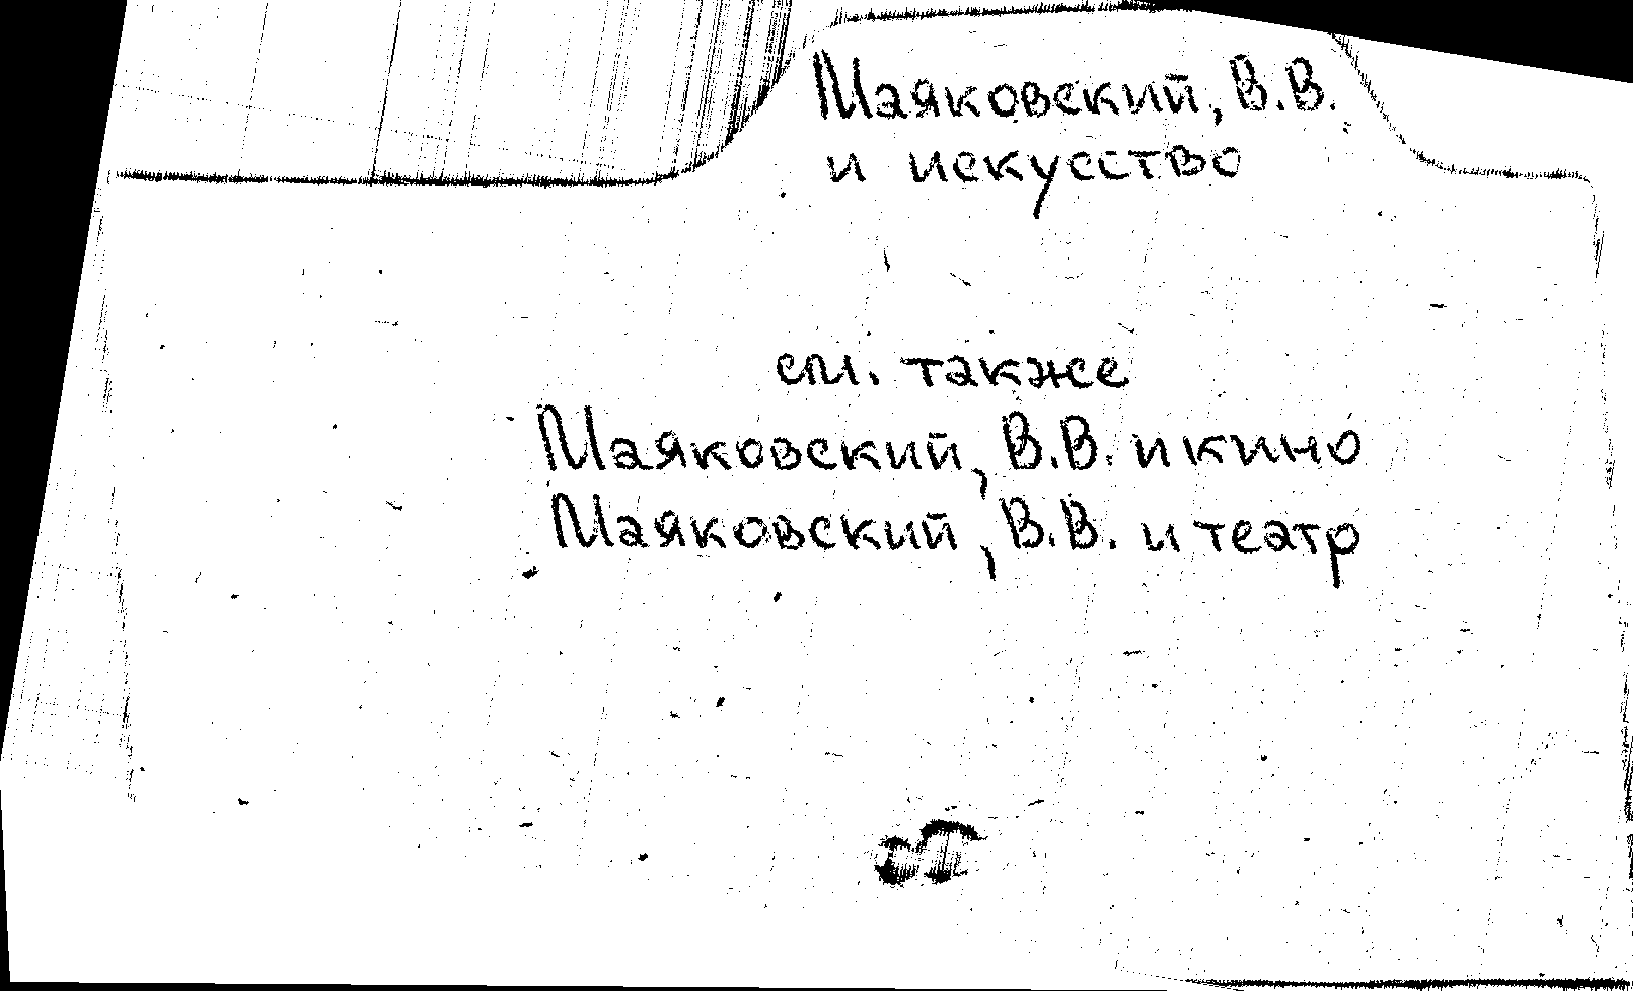 Маяковский, В.В.
и искусство
см. также
Маяковский, В.В. и кино
Маяковский, В.В. и театр